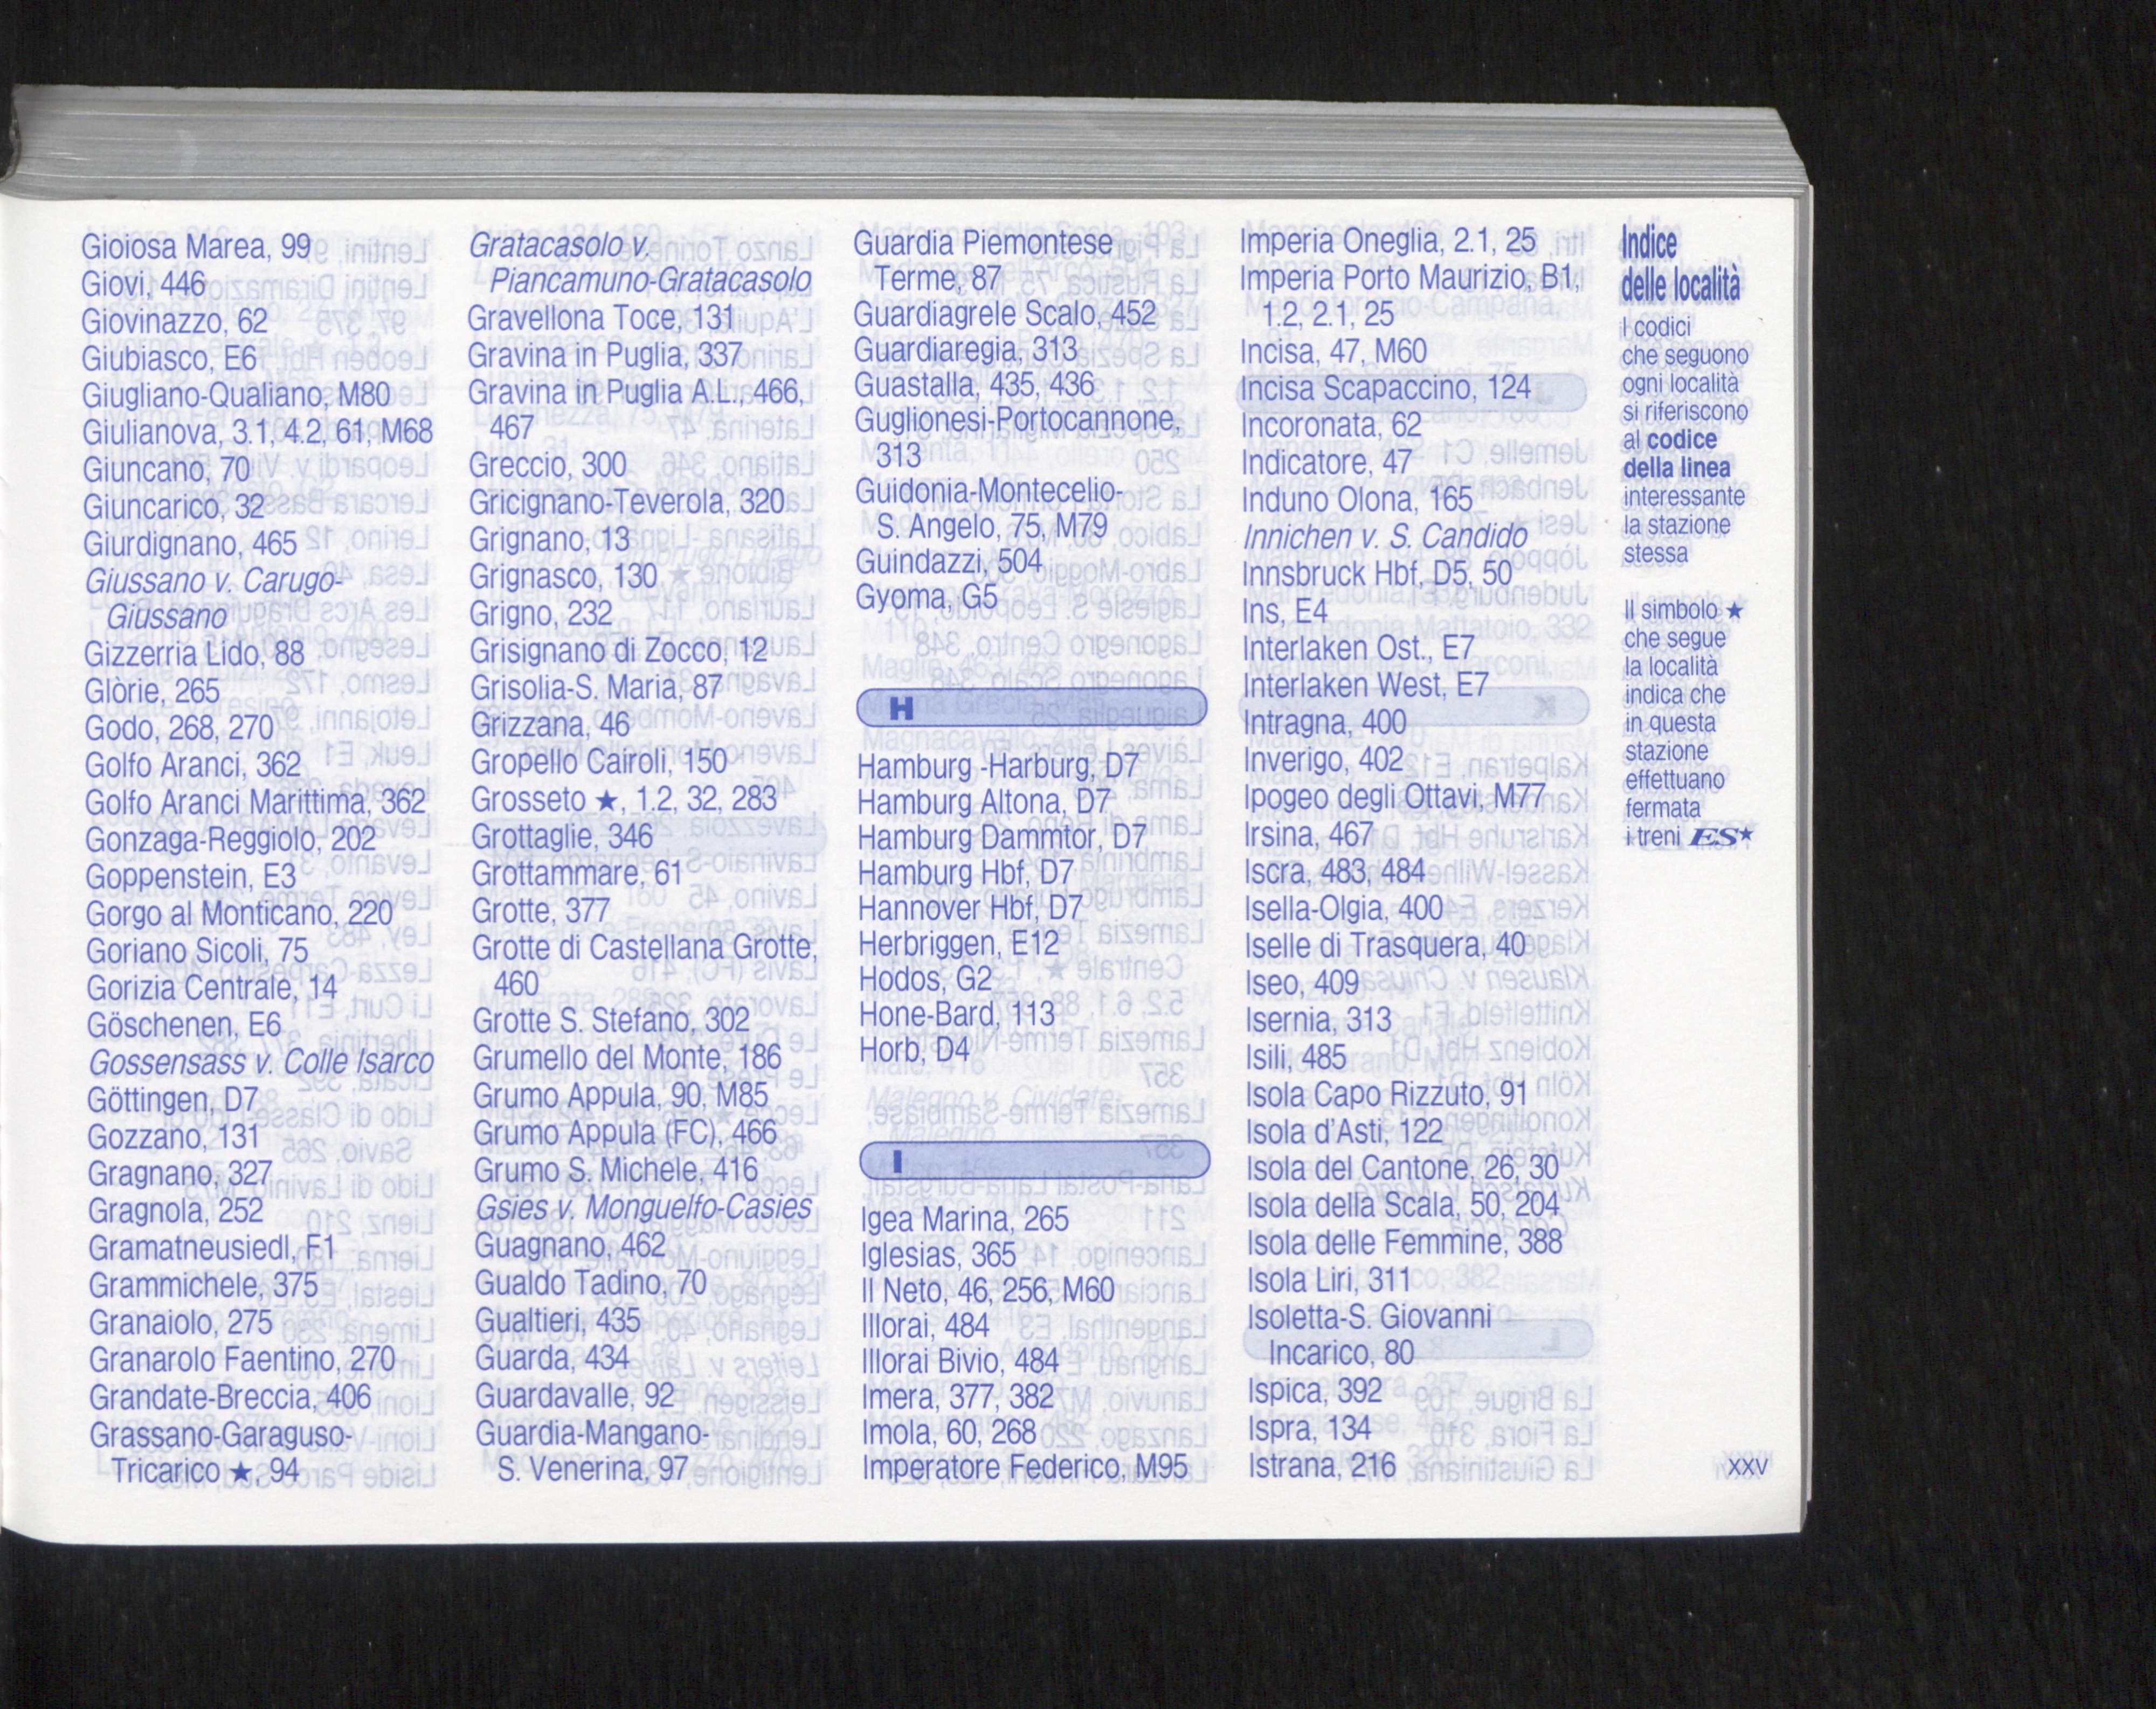 Gioiosa Marea, 99
Giovi, 446
Giovinazzo, 62
Giubiasco, E6
Giugliano-Qualiano, M80
Giulianova, 3.1, 4.2, 61, M68
Giuncano, 70
Giuncarico, 32
Giurdignano, 465
Giussano v. Carugo-
Giussano
Gizzerria Lido, 88
Glòrie, 265
Godo, 268, 270
Golfo Aranci, 362
Golfo Aranci Marittima, 362
Gonzaga-Reggiolo, 202
Goppenstein, E3
Gorgo al Monticano, 220
Goriano Sicoli, 75
Gorizia Centrale, 14
Göschenen, E6
Gossensass v. Colle Isarco
Göttingen, D7
Gozzano, 131
Gragnano, 327
Gragnola, 252
Gramatneusiedl, F1
Grammichele, 375
Granaiolo, 275
Granarolo Faentino, 270
Grandate-Breccia, 406
Grassano-Garaguso-
Tricarico ★, 94
Gratacasolo v.
Piancamuno-Gratacasolo
Gravellona Toce, 131
Gravina in Puglia, 337
Gravina in Puglia A.L., 466,
467
Greccio, 300
Gricignano-Teverola, 320
Grignano, 13
Grignasco, 130
Grigno, 232
Grisignano di Zocco, 12
Grisolia-S. Maria, 87
Grizzana, 46
Gropello Cairoli, 150
Grosseto ★, 1.2, 32, 283
Grottaglie, 346
Grottammare, 61
Grotte, 377
Grotte di Castellana Grotte,
460
Grotte S. Stefano, 302
Grumello del Monte, 186
Grumo Appula, 90, M85
Grumo Appula (FC), 466
Grumo S. Michele, 416
Gsies v. Monguelfo-Casies
Guagnano, 462
Gualdo Tadino, 70
Gualtieri, 435
Guarda, 434
Guardavalle, 92
Guardia-Mangano-
S. Venerina, 97
Guardia Piemontese
Terme, 87
Guardiagrele Scalo, 452
Guardiaregia, 313
Guastalla, 435, 436
Guglionesi-Portocannone,
313
Guidonia-Montecelio-
S. Angelo, 75, M79
Guindazzi, 504
Gyoma, G5
H
Hamburg -Harburg, D7
Hamburg Altona, D7
Hamburg Dammtor, D7
Hamburg Hbf, D7
Hannover Hbf, D7
Herbriggen, E12
Hodos, G2
Hone-Bard, 113
Horb, D4
I
Igea Marina, 265
Iglesias, 365
Il Neto, 46, 256, M60
Illorai, 484
Illorai Bivio, 484
Imera, 377, 382
Imola, 60, 268
Imperatore Federico, M95
Imperia Oneglia, 2.1, 25
Imperia Porto Maurizio, B1,
1.2, 2.1, 25
Incisa, 47, M60
Incisa Scapaccino, 124
Incoronata, 62
Indicatore, 47
Induno Olona, 165
Innichen v. S. Candido
Innsbruck Hbf, D5, 50
Ins, E4
Interlaken Ost., E7
Interlaken West, E7
Intragna, 400
Inverigo, 402
Ipogeo degli Ottavi, M77
Irsina, 467
Iscra, 483, 484
Isella-Olgia, 400
Iselle di Trasquera, 40
Iseo, 409
Isernia, 313
Isili, 485
Isola Capo Rizzuto, 91
Isola d'Asti, 122
Isola del Cantone, 26, 30
Isola della Scala, 50, 204
Isola delle Femmine, 388
Isola Liri, 311
Isoletta-S. Giovanni
Incarico, 80
Ispica, 392
Ispra, 134
Istrana, 216
Indice
delle località
I codici
che seguono
ogni località
si riferiscono
al codice
della linea
interessante
la stazione
stessa
Il simbolo ★
che segue
la località
indica che
in questa
stazione
effettuano
fermata
i treni ES★
XXV